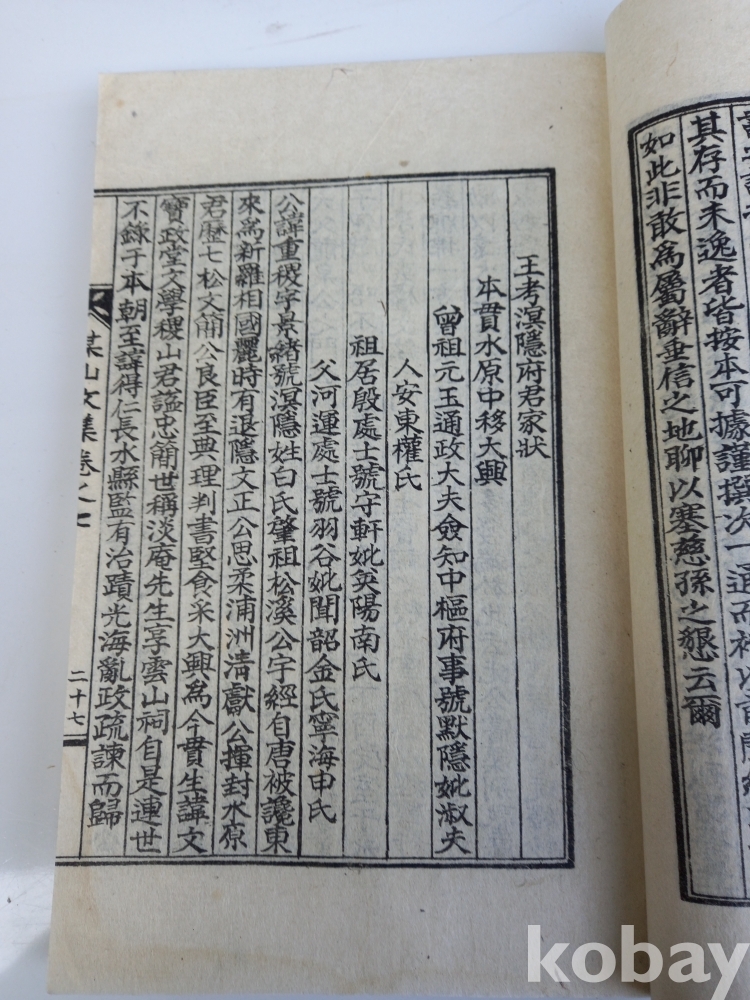 其存而未逸者皆按本可據謹撰次一通而
如此非敢爲屬辭垂信之地聊以塞慈孫之懇云爾
王考溟隱府君家狀
本貫水原中移大興
曾祖元玉通政大夫僉知中樞府事號默隱妣淑夫
人安東權氏
祖居殷處士號守軒妣英陽南氏
父河運處士號羽谷妣聞韶金氏寧海申氏
公諱重稷字景緒號溟隱姓白氏肇祖松溪公宇經自唐被讒東
來爲新羅相國麗時有退隱文正公思柔浦洲淸獻公揮封水原
君歷七松文簡公良臣至典理判書堅食采大興爲今貫生諱文
寶政堂文學稷山君諡忠簡世稱淡庵先生享雲山祠自是連世
不錄于本朝至諱得仁長水縣監有治蹟光海亂政疏諫而歸
某山文集卷之七
二十七
kobay